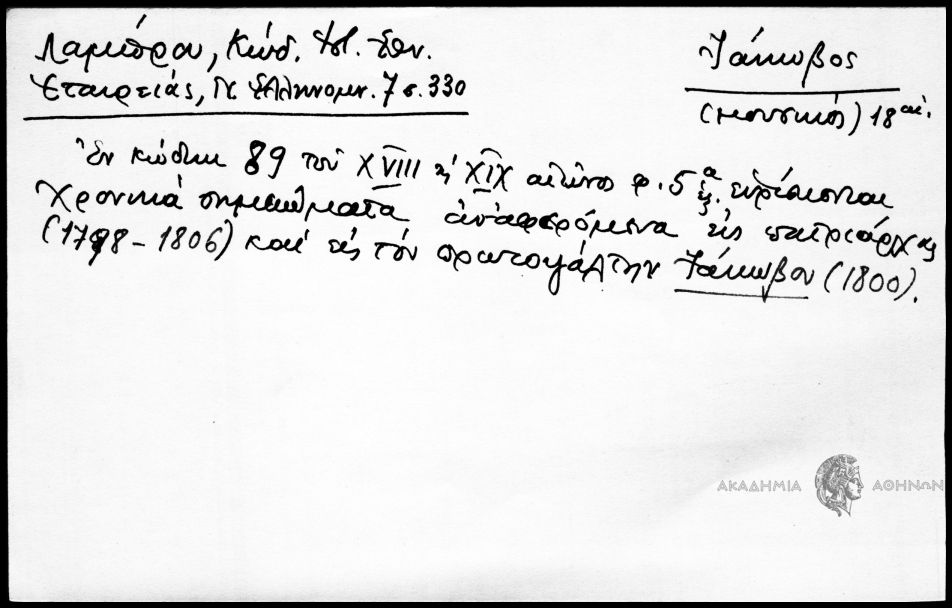 Λαμπρου, Κώδ. Ἱστ. Ἐθν.
Ἑταιρείας, Ν. Ἑλληνομν. 7 σ. 330
Ἰάκωβος
(μουσικός) 18 αἰ.
Ἐν κώδικι 89 τοῦ XVIII ἢ XIX αἰῶνος φ. 5α ἑξ. εὑρίσκονται
χρονικά σημειώματα ἀναφερόμενα εἰς πατριάρχας
(1798 - 1806) καί εἰς τόν πρωτοψάλτην Ἰάκωβον (1800).
ΑΚΑΔΗΜΙΑ ΑΘΗΝΩΝ